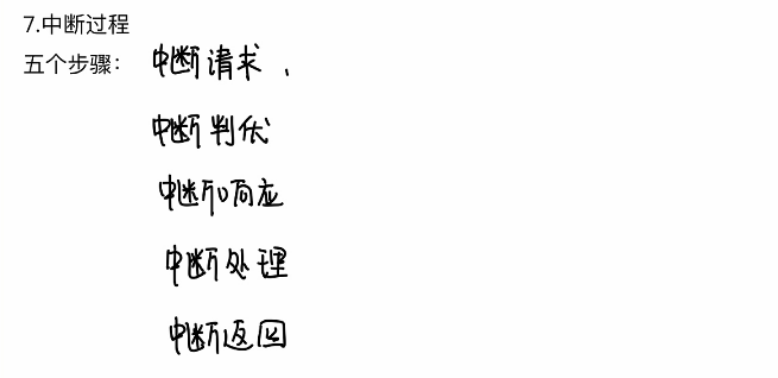 7.中断过程
五个步骤：中断请求、
中断判优
中断响应
中断处理
中断返回